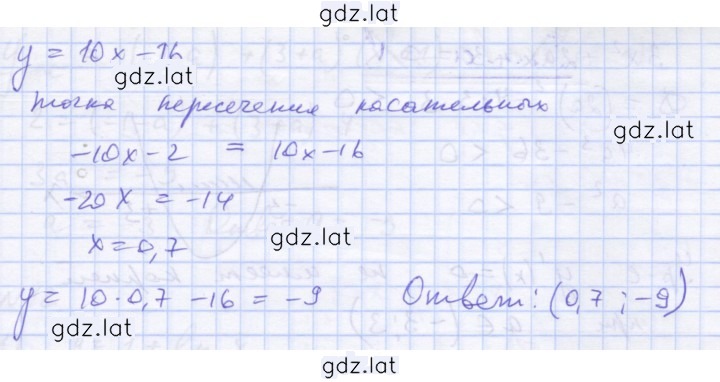 gdz.lat
y = 10x - 16
gdz.lat
точка пересечения касательных
gdz.lat
-10x - 2 = 10x - 16
-20x = -14
x = 0,7
gdz.lat
y = 10 · 0,7 - 16 = -9 Ответ: (0,7 ; -9)
gdz.lat
gdz.lat